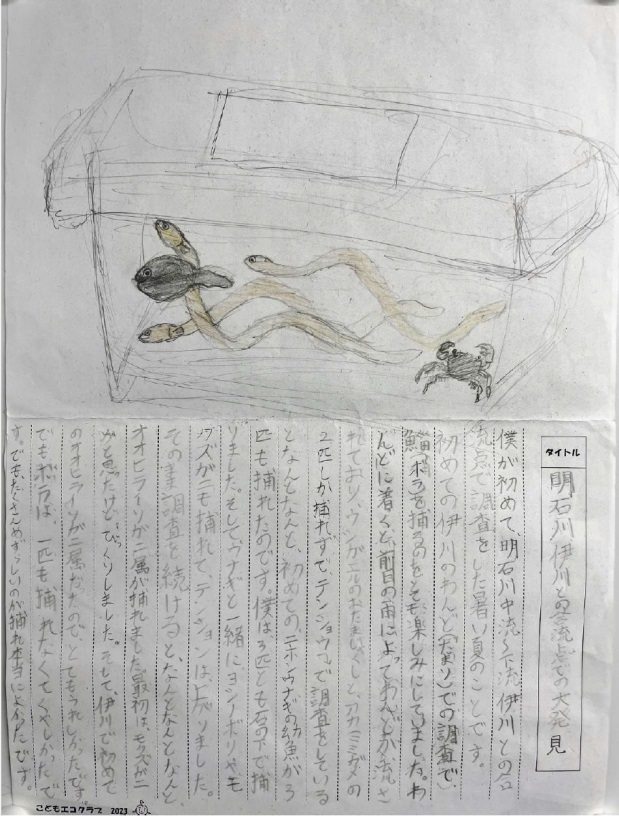 タイトル
明石川伊川との合流点での大発見
僕が初めて、明石川中流〜下流、伊川との合
流点で調査をした暑い夏のことです。
初めての伊川のわんど(たまり)での調査で、
鯔(ボラ)を捕るのをとても楽しみにしていました。わ
んどに着くと、前日の雨によってわんどが流さ
れており、ウシガエルのおたまじゃくしと、アカミミガメの
2匹しか捕れずで、テンション↓で調査をしている
となんとなんと、初めての、ニホンウナギの幼魚が3
匹も捕れたのです。僕は3匹とも石の下で捕
りました。そしてウナギと一緒にヨシノボリやモ
クズガニも捕れて、テンションは、上がりました。
そのまま調査を続けると、なんとなんとなんと
オオヒライソガニ属が捕れました。最初は、モクズガニ
かと思ったけど、びっくりしました。そして、伊川で初めて
のオオヒライソガニ属だったので、とてもうれしかったです。
でもボラは、一匹も捕れなくてくやしかったで
す。でも、たくさんめずらしいのが捕れ本当によかったです。
こどもエコクラブ 2023